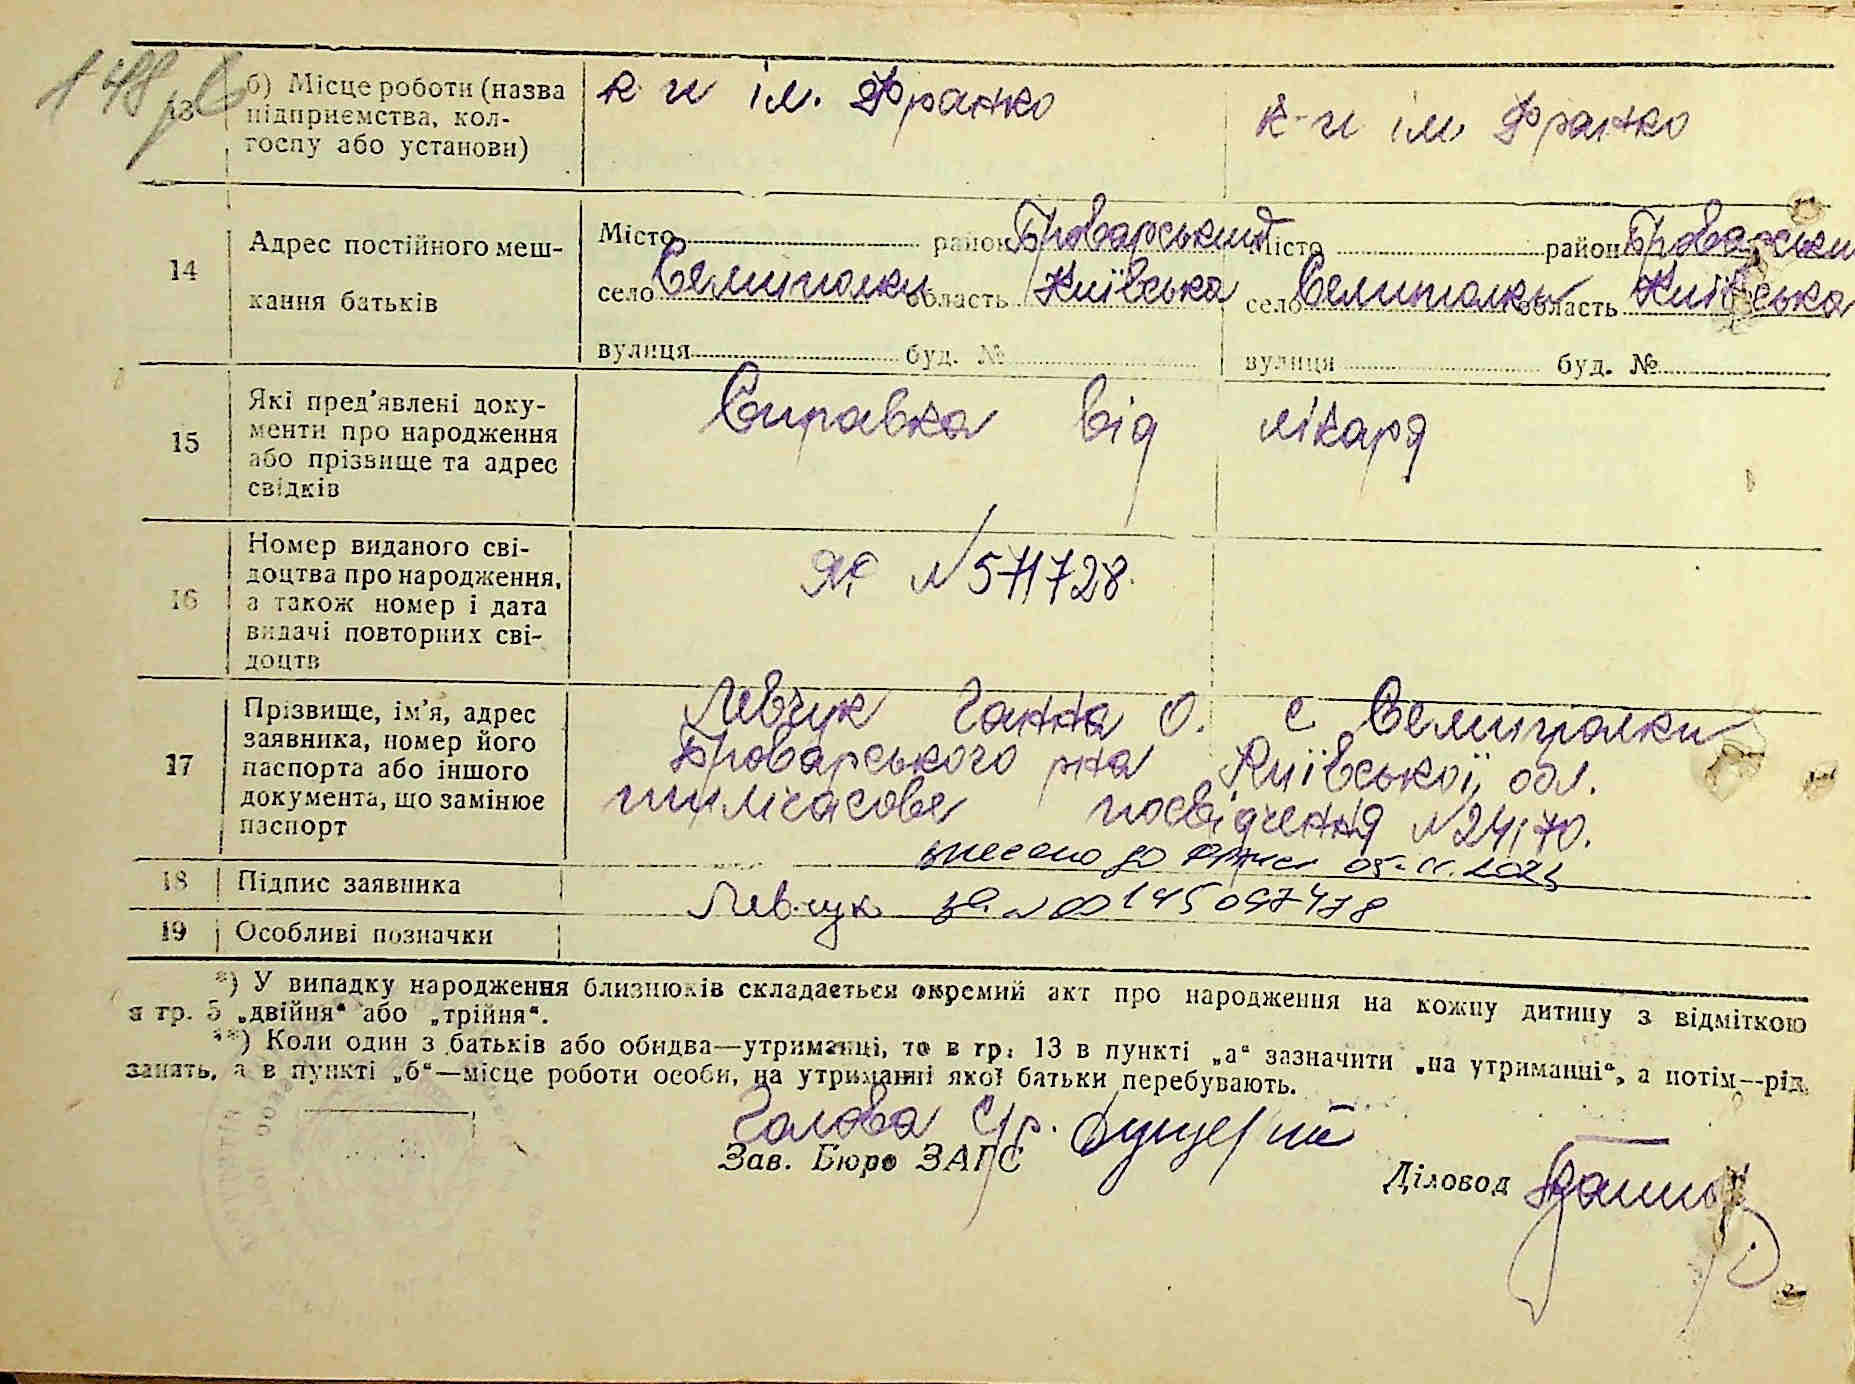 148
13 б) Місце роботи (назва підприємства, колгоспу або установи) к-п ім. Франко к-п ім Франко
14 Адрес постійного мешкання батьків
Місто район Броварський Місто район Броварськи
село Семиполки область Київська село Семиполки область Київська
вулиця буд. № вулиця буд. №
15 Які пред'явлені документи про народження або прізвище та адрес свідків Справка від лікаря
16 Номер виданого свідоцтва про народження, а також номер і дата видачі повторних свідоцтв ЯЄ № 571728.
17 Прізвище, ім'я, адрес заявника, номер його паспорта або іншого документа, що замінює паспорт
Левчук Ганна О. с Семиполки
Броварського рна Київської обл.
тимчасове посвідчення №24170.
внесено до 05.11.2021
18 Підпис заявника Левчук за № 00145097478
19 Особливі позначки
*) У випадку народження близнюків складається окремий акт про народження на кожну дитину з відміткою
в гр. 5 „двійня“ або „трійня“.
**) Коли один з батьків або обидва—утриманці, то в гр. 13 в пункті „а“ зазначити „на утриманні“, а потім—рід
занять, а в пункті „б“—місце роботи особи, на утриманні якої батьки перебувають.
Голова с/р.
Зав. Бюро ЗАГС
Діловод